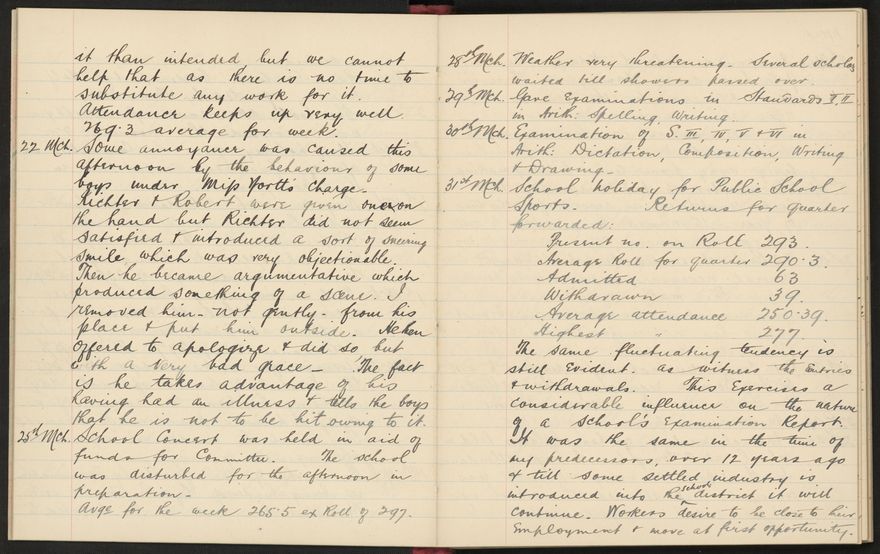 it than intended but we cannot
help that as there is no time to
substitute any work for it.
Attendance keeps up very well
269.3 average for week.
22 Mch. Some annoyance was caused this
afternoon by the behaviour of some
boys under Miss Yortt's charge-
Richter & Robert were given one on
the hand but Richter did not seem
satisfied & introduced a sort of sneering
smile which was very objectionable.
Then he became argumentative which
produced something of a scene. I
removed him - not gently - from his
place & put him outside. He then
offered to apologize & did so but
with a very bad grace - The fact
is he takes advantage of his
having had an illness & tells the boys
that he is not to be hit owing to it.
25th Mch. School Concert was held in aid of
funds for Committee. The school
was disturbed for the afternoon in
preparation -
Avge for the week 265.5 ex Roll of 297.
28th Mch. Weather very threatening. Several scholars
waited till showers passed over.
29th Mch. Gave Examinations in Standards I, II
in Arith: Spelling, Writing.
30th Mch. Examination of S. III IV, V & VI in
Arith: Dictation, Composition, Writing
& Drawing -
31st Mch. School holiday for Public School
Sports. Returns for quarter
forwarded:
Present no. on Roll 293.
Average Roll for quarter 290.3.
Admitted 63
Withdrawn 39.
Average attendance 250.39.
Highest " 277
The same fluctuating tendency is
still evident. as witness the Entries
& withdrawals. This Exercises a
considerable influence on the nature
of a School's Examination Report.
It was the same in the time of
my predecessors, over 12 years ago
& till some settled industry is
introduced into the school district it will
continue. Workers desire to be close to their
Employment & move at first opportunity.